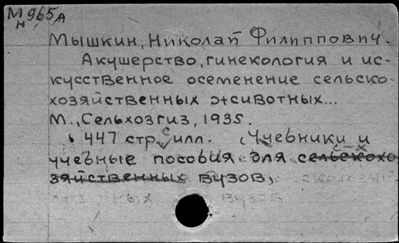 М 965 А
Н
Мышкин, Николай Филиппович.
Акушерство, гинекология и ис-
кусственное осеменение сельско-
хозяйственных животных...
М., Сельхозгиз, 1935.
447 стр. с илл. (Учебники и
учебные пособия для сельскохо
с-х
зяйственных вузов)